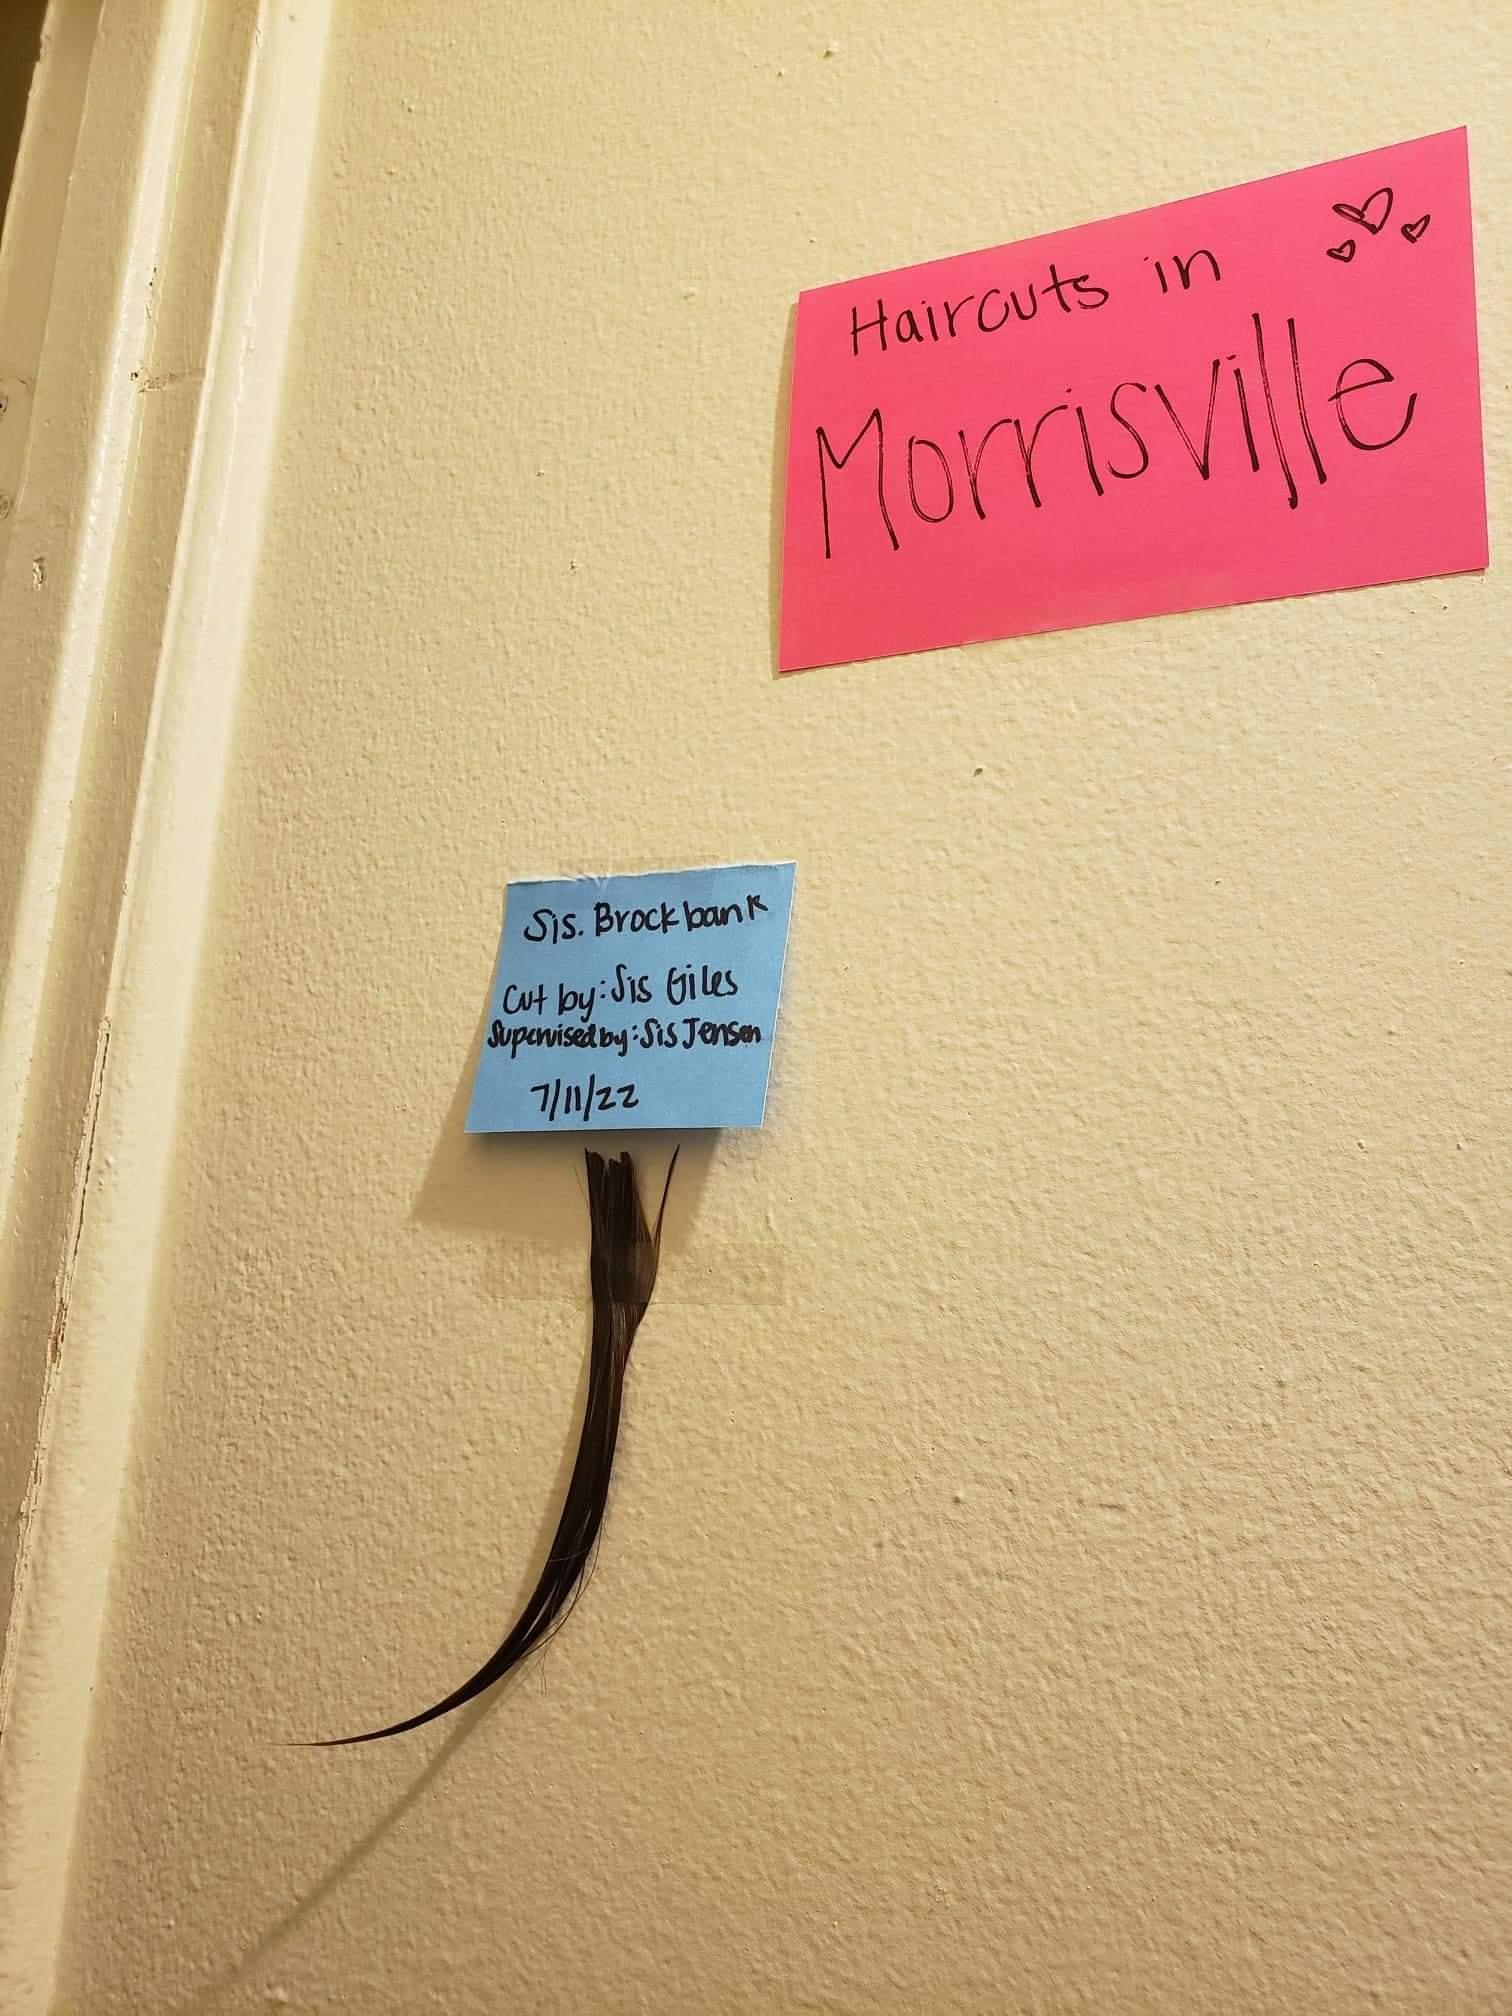 Haircuts in
Morrisville
Sis. Brockbank
Cut by: Sis Giles
Supervised by: Sis Jensen
7/11/22